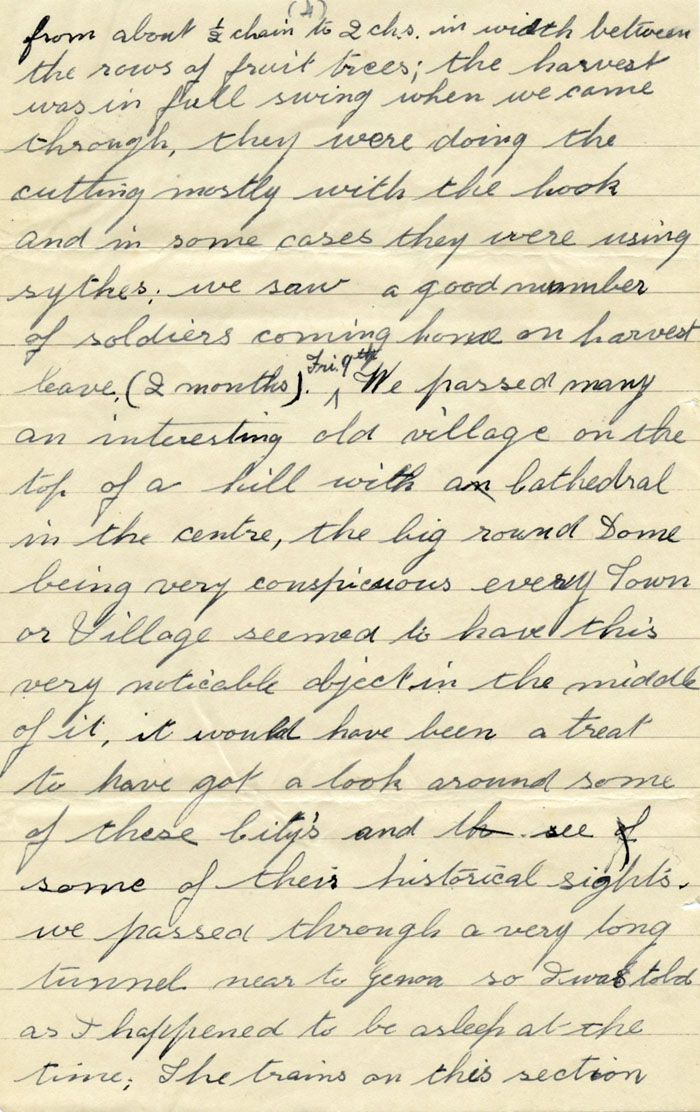 (4)
from about ½ chain to 2 chs. in width between
the rows of fruit trees; the harvest
was in full swing when we came
through, they were doing the
cutting mostly with the hook
and in some cases they were using
sythes; we saw a good number
of soldiers coming home on harvest
leave, (2 months). Fri. 9th We passed many
an interesting old village on the
top of a hill with a Cathedral
in the centre, the big round Dome
being very conspicuous every Town
or Village seemed to have this
very noticable object in the middle
of it, it would have been a treat
to have got a look around some
of these City's and see
some of their historical sights.
we passed through a very long
tunnel near to Genoa so I was told
as I happened to be asleep at the
time; The trains on this section